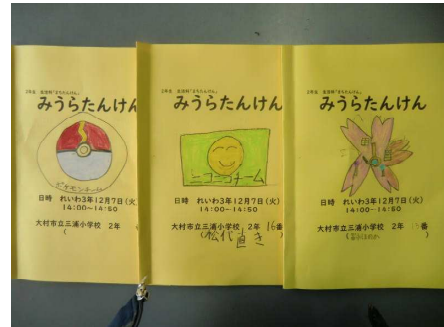 2年生 生活科「まちたんけん」
みうらたんけん
ピカモンチーム
日時 れいわ3年12月7日(火
14:00~14:50
大村市立三浦小学校 2年
(
2年生 生活科「まちたんけん」
みうらたんけん
ニコニコチーム
日時 れいわ3年12月7日(火)
14:00~14:50
大村市立三浦小学校 2年 16番
(松代直き
2年生 生活科「まちたんけん」
みうらたんけん
日時 れいわ3年12月7日(火)
14:00~14:50
大村市立三浦小学校 2年 13番